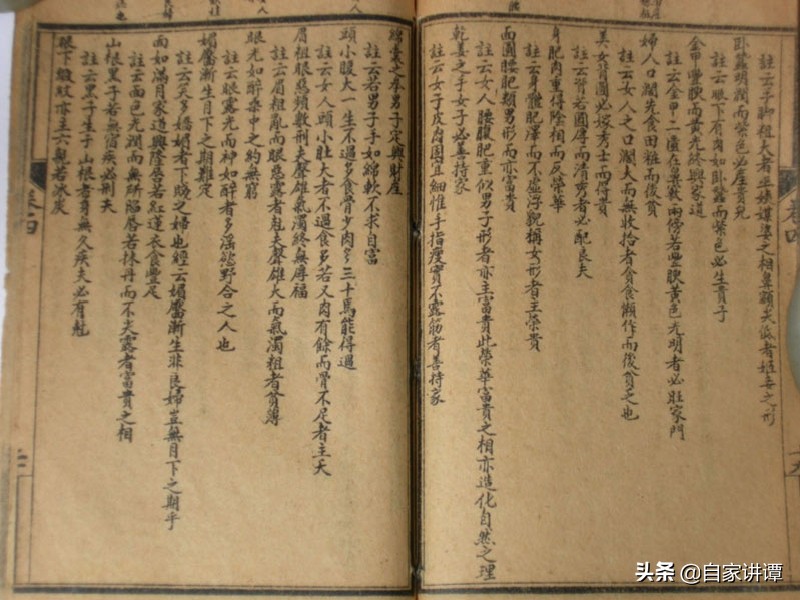 註云手脚粗大者巫娘媒婆之相鼻顴尖低者姬妾之形
卧蠶明潤而紫色必產貴兒
註云眼下有肉如卧蠶而紫色必生貴子
金甲豐腴而黃光終興家道
註云金甲二匱在鼻竅兩傍若豐腴黃色光明者必旺家門
婦人口濶先食田粧而後貧
註云女人之口濶大而無收拾者貪食懶作而後貧之也
美女背圓必嫁秀士而得貴
註云背若圓厚而清秀者必配良夫
身肥肉重得陰相而反榮華
註云身體肥澤而不虛浮貌稱女形者主榮貴
面圓腰肥類男形而亦富貴
註云女人腰腹肥重似男子形者亦主富貴此榮華富貴之相亦造化自然之理
乾姜之手女子必善持家
註云女子皮肉固宜細惟手指瘦實不露筋者善持家
綿囊之拳男子定興財產
註云若男子手如綿軟不求自富
頭小腹大一生不過多食骨少肉多三十焉能得過
註云女人頭小肚大者不過食多若又肉有餘而骨不足者主夭
眉粗眼惡頻數刑夫聲雄氣濁終無厚福
註云眉粗亂而眼惡露者尅夫聲雄大而氣濁粗者貧薄
眼光如醉桑中之約無窮
註云眼露光而神如醉者多淫慾野合之人也
媚靨漸生月下之期難定
註云笑多嬌媚者下賤之婦也經云媚靨漸生非良婦豈無月下之期乎
面如滿月家道興隆唇若紅蓮衣食豐足
註云面色光潤而無缺陷唇若抹丹而不尖露者富貴之相
山根黑子若無宿疾必刑夫
註云黑子生于山根者身無久疾夫必有尅
眼下皺紋亦主六親若冰炭
卷四